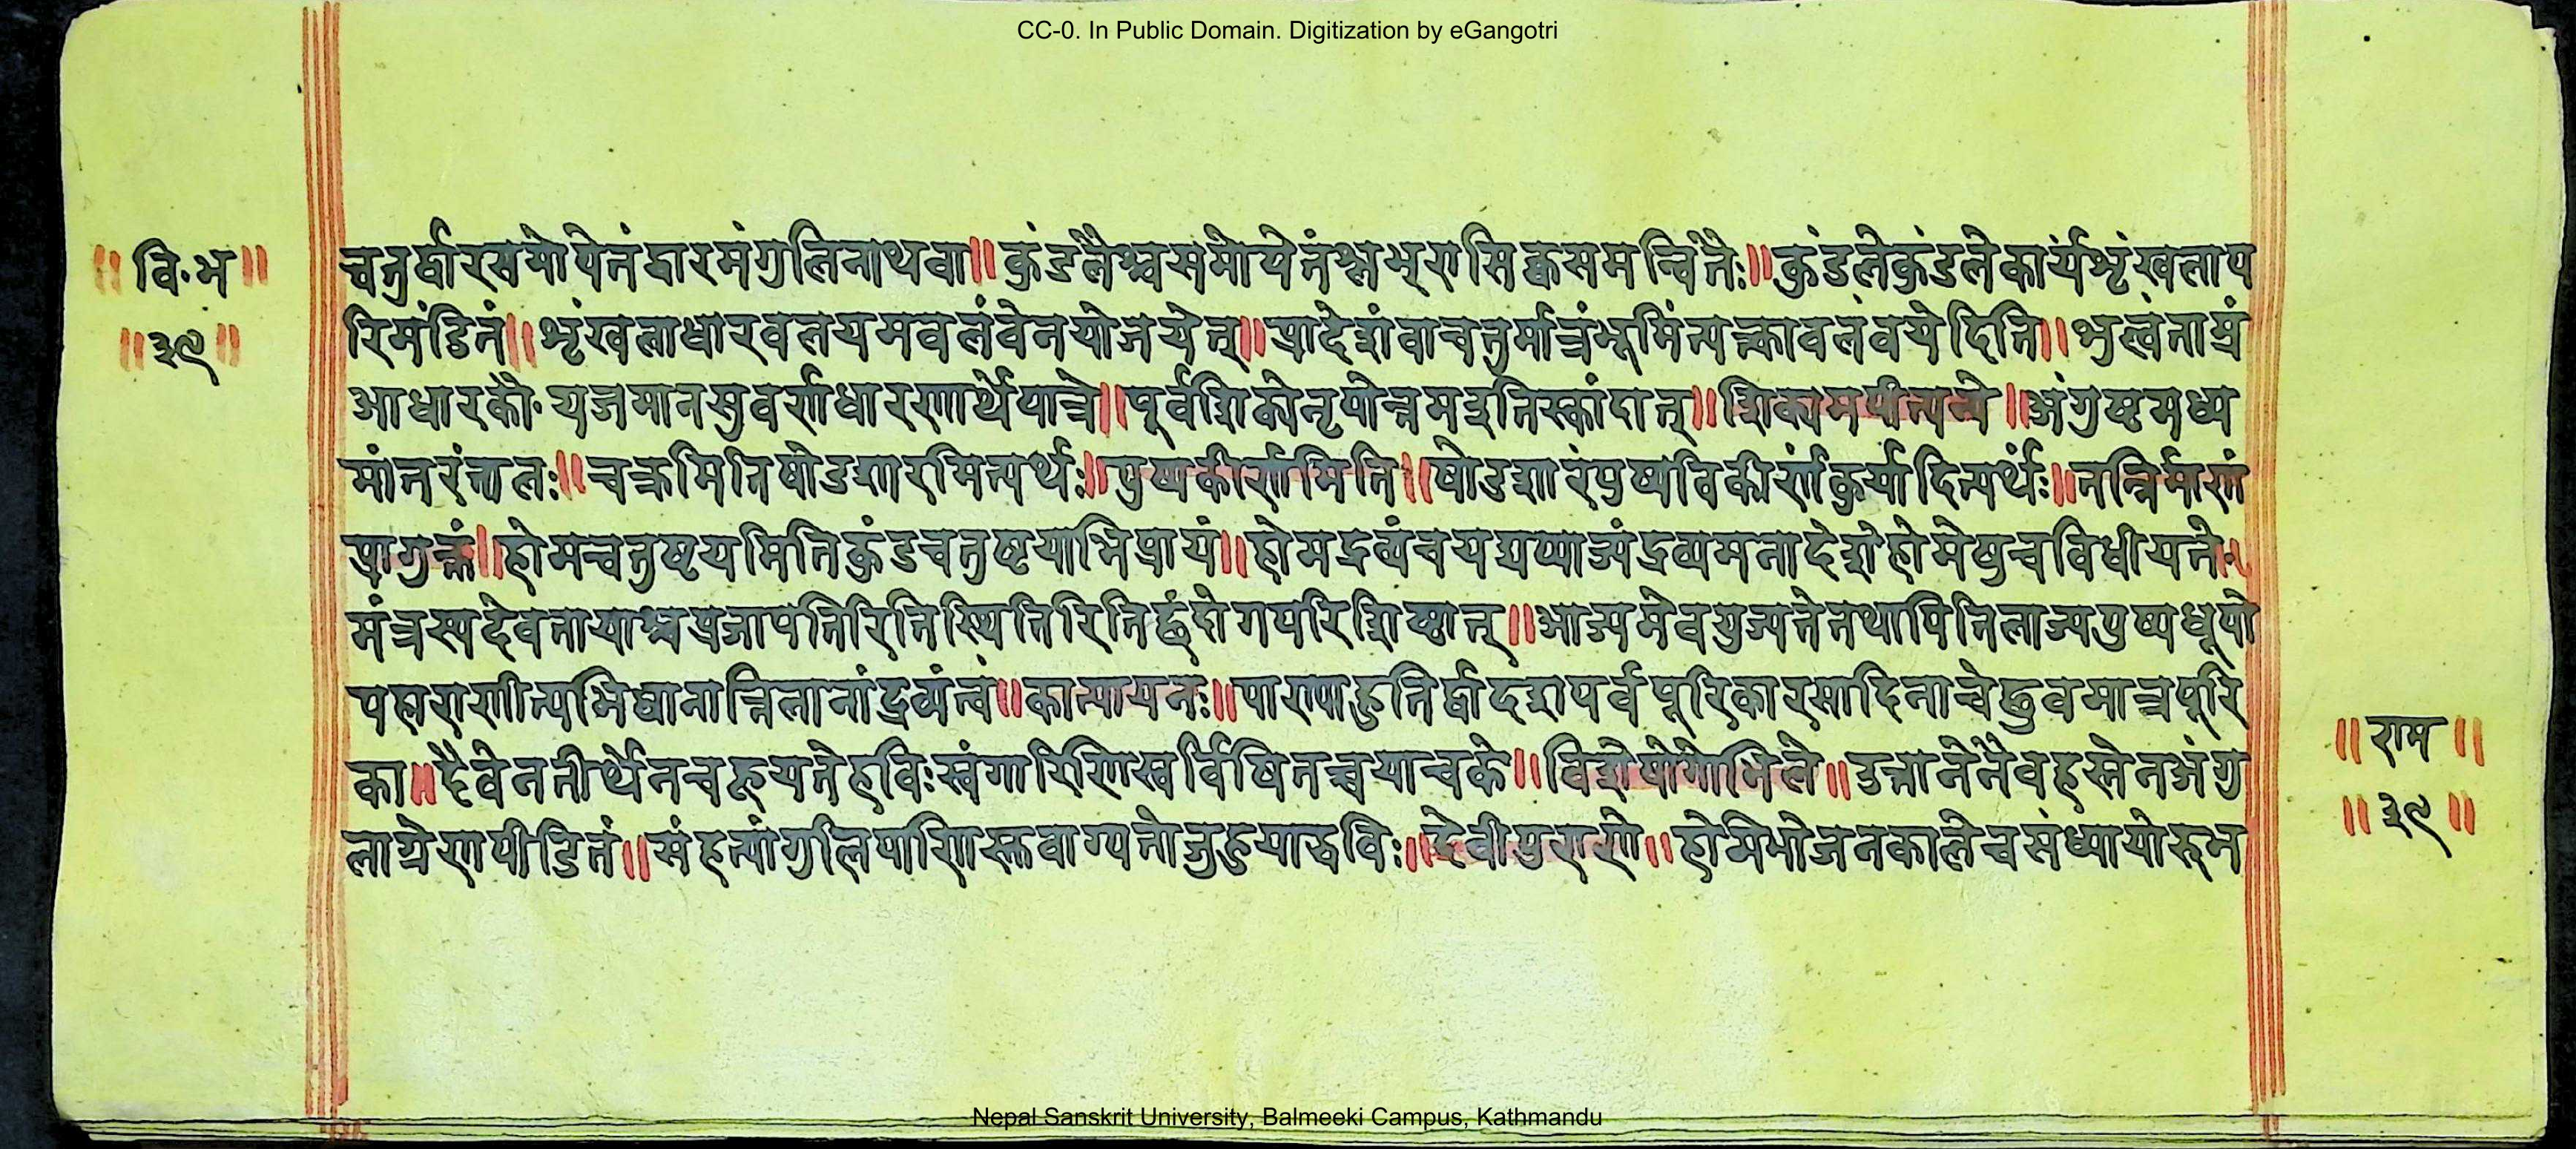 CC-0. In Public Domain. Digitization by eGangotri
॥ वि॰भ ॥
॥ ३९ ॥
चतुर्धारसमोपेतंद्वारमंगुलिनाथवा॥ कुंडलैश्चसमोपेतंश्लक्ष्णसिक्थसमन्वितैः॥ कुंडलेकुंडलेकार्यंशृंखलाप
रिमंडितं॥ शृंखलाधारवलयमवलंबेनयोजयेत्॥ प्रादेशंवाचतुर्मात्रंभूमिंत्यक्त्वावलंबयेदिति॥ ताम्रं
आधारको॰ यजमानसुवर्णधारणार्थेपात्रे॥ पूर्वशिक्ये ॥ शिक्यमपीत्यन्ये॥ अंगुष्ठमध्य
मांतरंतालः॥ चक्रमितिषोडशारमित्यर्थः॥ पुष्पकीर्णमिति॥ षोडशारंपुष्पविकीर्णंकुर्यादित्यर्थः॥ तन्निर्माणं
प्रागुक्तं॥ होमचतुष्टयमितिकुंडचतुष्टयाभिप्रायं॥ होमद्रव्यंचयद्यप्याज्यंद्रव्यमनादेशेहोमेषुचविधीयते॥
मंत्रस्यदेवतायाश्चप्रजापतिरितिस्थितिरितिछंदोगपरिशिष्टात्॥ आज्यमेवयुज्यतेतथापितिलाज्यपुष्पधूपो
पहाराणीत्यभिधानात्तिलानांद्रव्यंत्वं॥ कात्यायनः॥ पाण्याहुतिर्द्वादशपर्वपूरिकारसादिनाचेत्स्रुवमात्रपूरि
का॥ दैवेनतीर्थेनचहूयतेहविःस्वंगारिणिस्वर्चिषितच्चपावके॥ विशेषोगोभिले॥ उत्तानेनैवहस्तेनअंगु
ष्ठाग्रेणपीडितं॥ संहत्यांगुलिपाणिस्तुवाग्यतोजुहुयाद्धविः॥ देवीपुराणे॥ होमेभोजनकालेचसंध्यायोरुभ
॥ राम ॥
॥ ३९ ॥
Nepal Sanskrit University, Balmeeki Campus, Kathmandu